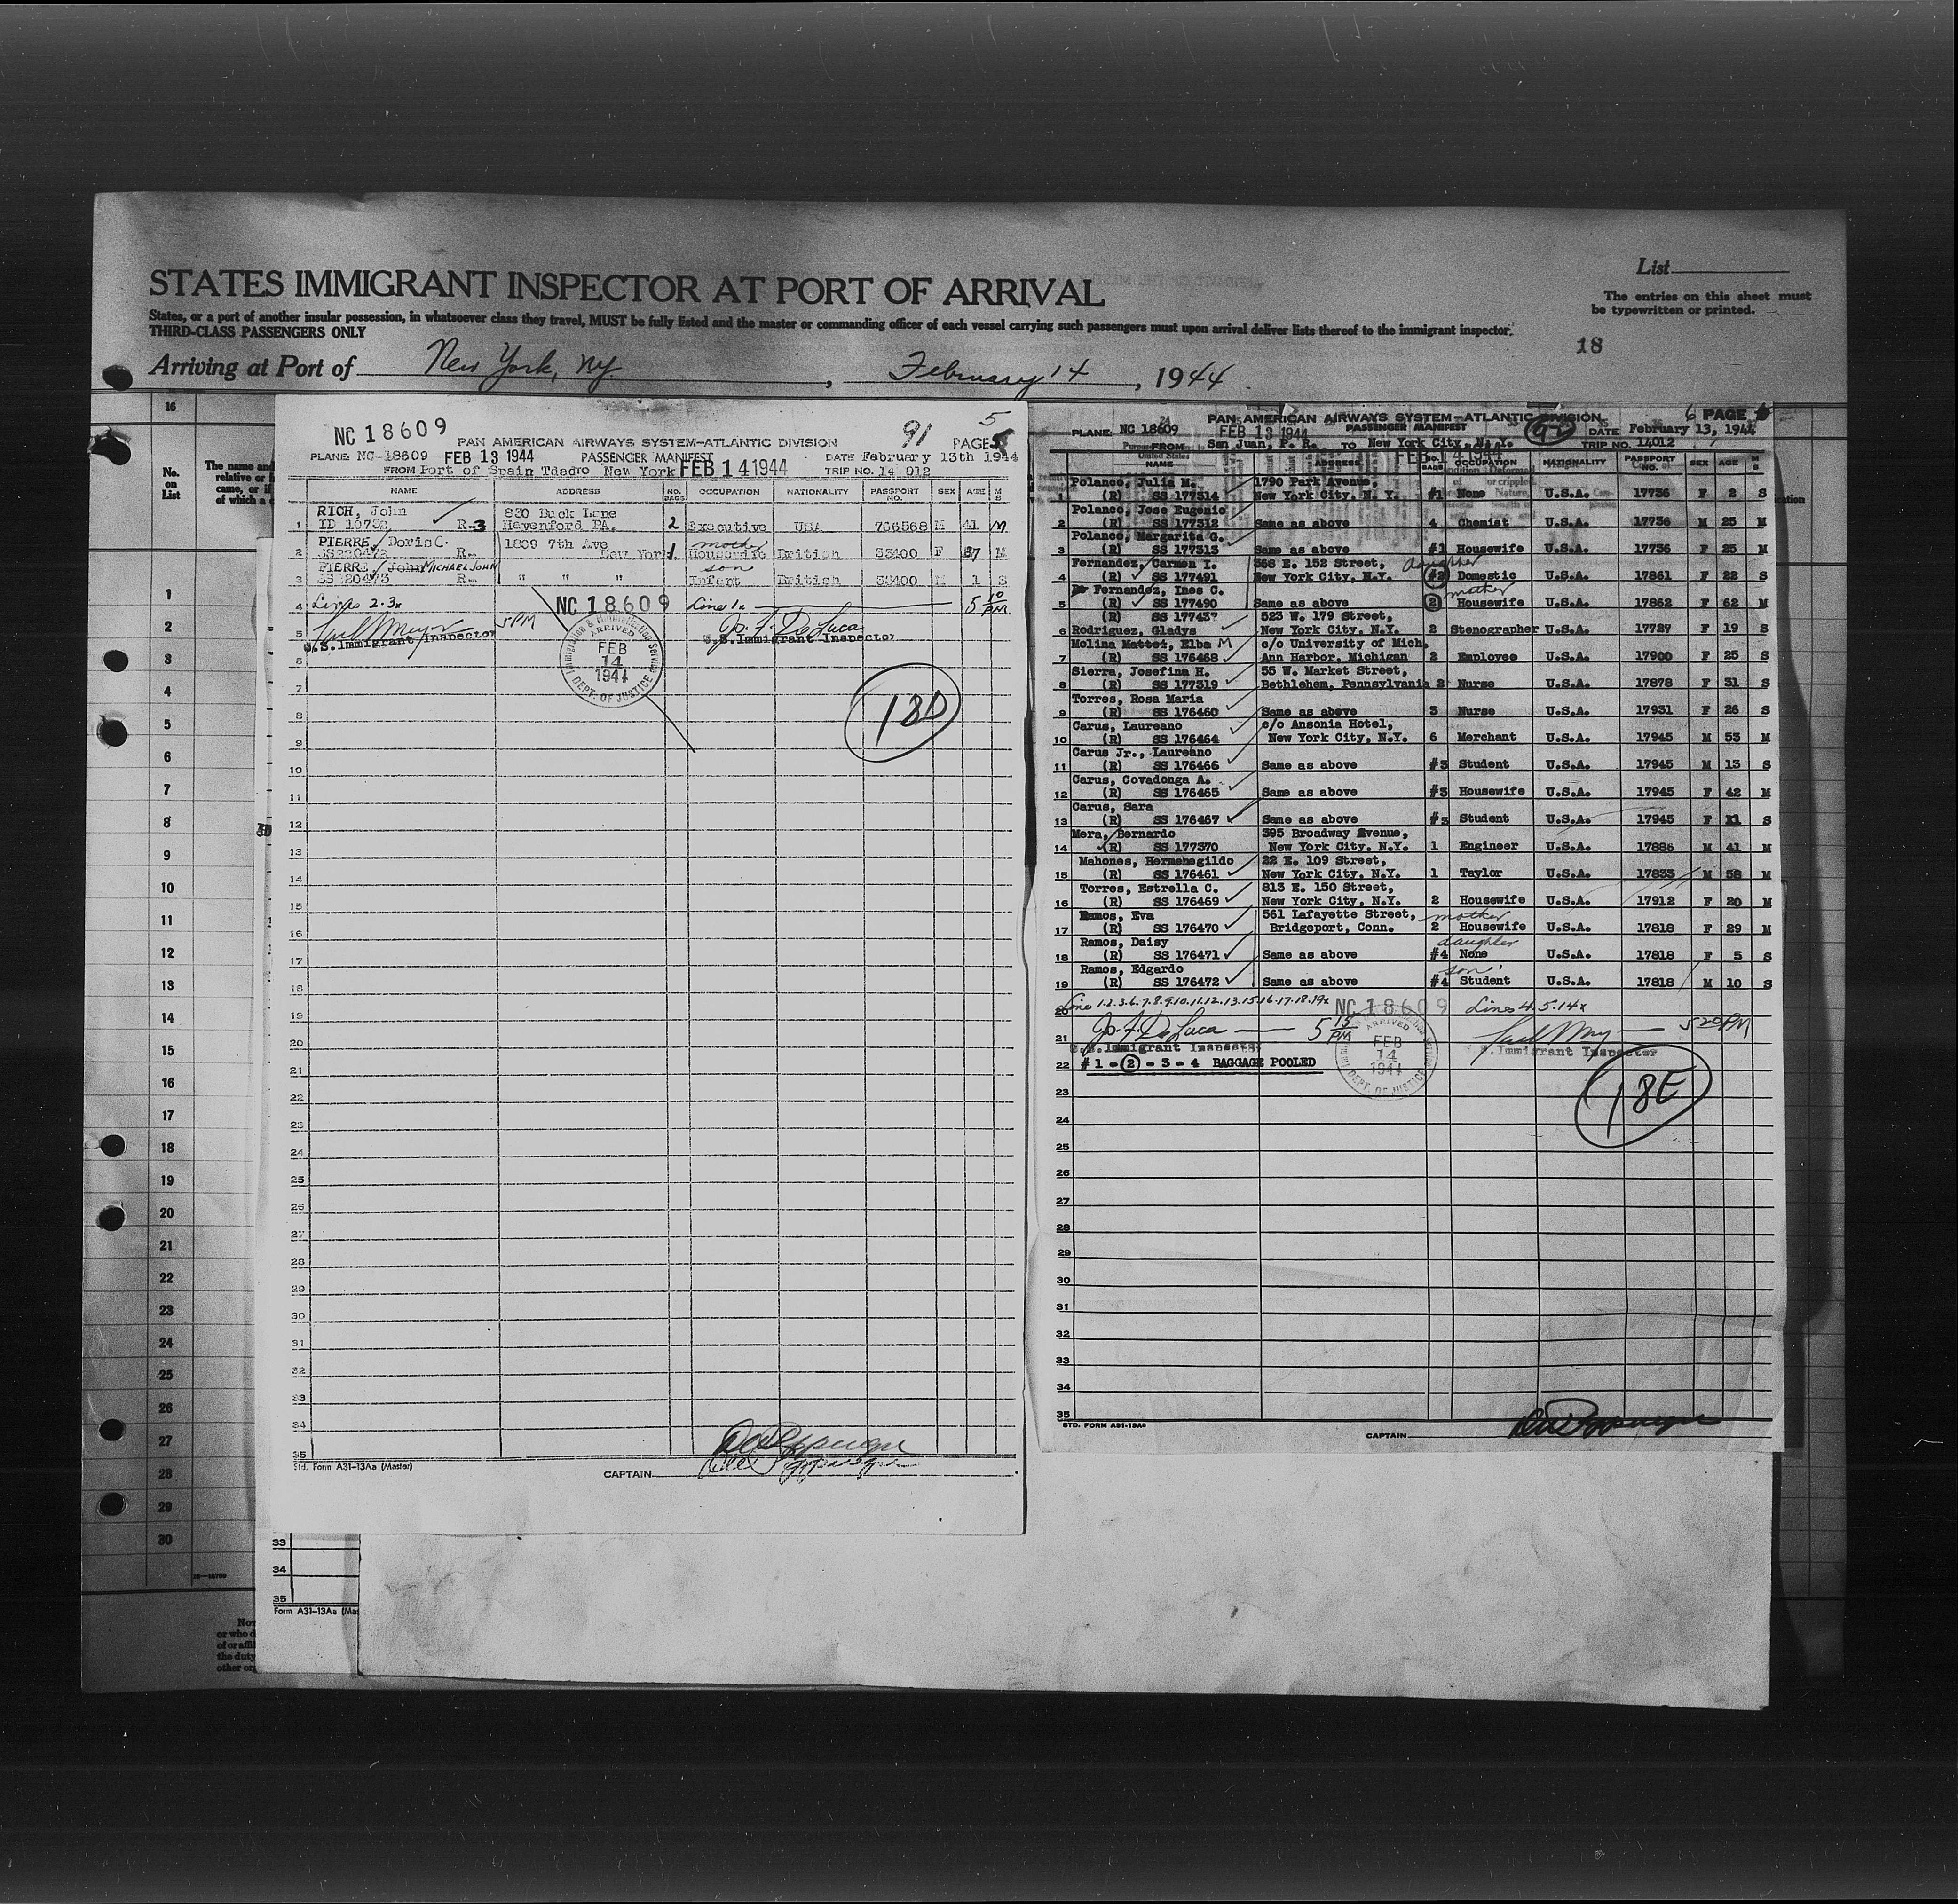 List
STATES IMMIGRANT INSPECTOR AT PORT OF ARRIVAL
The entries on this sheet must
be typewritten or printed.
States, or a port of another insular possession, in whatsoever class they travel, MUST be fully listed and the master or commanding officer of each vessel carrying such passengers must upon arrival deliver lists thereof to the immigrant inspector.
THIRD-CLASS PASSENGERS ONLY
18
Arriving at Port of New York, NY , February 14 , 1944
16
No. on List
The name and
relative or
came, or if
of which a
1
2
3
4
5
6
7
8
9
10
11
12
13
14
15
16
17
18
19
20
21
22
23
24
25
26
27
28
29
30
NC 18609
91
5
PAN AMERICAN AIRWAYS SYSTEM—ATLANTIC DIVISION PAGE
PLANE NC-18609 FEB 13 1944 PASSENGER MANIFEST DATE February 13th 1944
FROM Port of Spain Tdad TO New York FEB 14 1944 TRIP NO. 14 012
NAME ADDRESS NO. BAGS OCCUPATION NATIONALITY PASSPORT NO. SEX AGE M S
RICH, John 830 Buck Lane
1 R-3 Havenford PA. 2 Executive USA 706568 M 41 M
PIERRE, Doris C. 1809 7th Ave mother
2 R- New York 1 Housewife British 33400 F 37 M
PIERRE, John MICHAEL JOHN son
3 R- " " " Infant British 33400 M 1 S
4 Lines 2.3x NC 18609 Line 1x 5 10 PM
5 5PM Jo. F. DeLuca
U.S. Immigrant Inspector U.S. Immigrant Inspector
Immigration & Naturalization Service
ARRIVED
FEB
14
1944
DEPT. OF JUSTICE
18D
6
7
8
9
10
11
12
13
14
15
16
17
18
19
20
21
22
23
24
25
26
27
28
29
30
31
32
33
34
35
Std. Form A31-13Aa (Master)
CAPTAIN
33
34
35
Form A31-13Aa (Mas
Not
or who d
of or affil
the duty
other org
PAN AMERICAN AIRWAYS SYSTEM—ATLANTIC DIVISION 6 PAGE
PLANE: NC 18609 FEB 13 1944 PASSENGER MANIFEST DATE February 13, 1944
FROM San Juan, P. R. TO New York City, N. Y. TRIP NO. 14012
FEB 14 1944
NAME ADDRESS NO. BAGS OCCUPATION NATIONALITY PASSPORT NO. SEX AGE M S
Polanco, Julia M. 1790 Park Avenue,
1 (R) SS 177314 New York City, N. Y. #1 None U.S.A. 17736 F 2 S
Polanco, Jose Eugenio
2 (R) SS 177312 Same as above 4 Chemist U.S.A. 17736 M 25 M
Polanco, Margarita G.
3 (R) SS 177313 Same as above #1 Housewife U.S.A. 17736 F 25 M
Fernandez, Carmen I. 368 E. 152 Street, daughter
4 (R) SS 177491 New York City, N.Y. #2 Domestic U.S.A. 17861 F 22 S
Fernandez, Ines C. mother
5 (R) SS 177490 Same as above 2 Housewife U.S.A. 17862 F 62 M
(R) 523 W. 179 Street,
6 Rodriguez, Gladys New York City, N.Y. 2 Stenographer U.S.A. 17727 F 19 S
Molina Mattei, Elba M c/o University of Mich,
7 (R) SS 176468 Ann Harbor, Michigan 2 Employee U.S.A. 17900 F 25 S
Sierra, Josefina H. 55 W. Market Street,
8 (R) SS 177319 Bethlehem, Pennsylvania 2 Nurse U.S.A. 17878 F 31 S
Torres, Rosa Maria
9 (R) SS 176460 Same as above 3 Nurse U.S.A. 17931 F 26 S
Carus, Laureano c/o Ansonia Hotel,
10 (R) SS 176464 New York City, N.Y. 6 Merchant U.S.A. 17945 M 53 M
Carus Jr., Laureano
11 (R) SS 176466 Same as above #3 Student U.S.A. 17945 M 13 S
Carus, Covadonga A.
12 (R) SS 176465 Same as above #3 Housewife U.S.A. 17945 F 42 M
Carus, Sara
13 (R) SS 176467 Same as above #3 Student U.S.A. 17945 F 11 S
Mera, Bernardo 395 Broadway Avenue,
14 (R) SS 177370 New York City, N.Y. 1 Engineer U.S.A. 17886 M 41 M
Mahones, Hermenegildo 22 E. 109 Street,
15 (R) SS 176461 New York City, N.Y. 1 Taylor U.S.A. 17833 M 58 M
Torres, Estrella C. 813 E. 150 Street,
16 (R) SS 176469 New York City, N.Y. 2 Housewife U.S.A. 17912 F 20 M
Ramos, Eva 561 Lafayette Street, mother
17 (R) SS 176470 Bridgeport, Conn. 2 Housewife U.S.A. 17818 F 29 M
Ramos, Daisy daughter
18 (R) SS 176471 Same as above #4 None U.S.A. 17818 F 5 S
Ramos, Edgardo son
19 (R) SS 176472 Same as above #4 Student U.S.A. 17818 M 10 S
20 Line 1.2.3.6.7.8.9.10.11.12.13.15.16.17.18.19x NC 18609 Lines 4.5.14x
21 Jo. F. DeLuca 5 15 PM 5 20 PM
U.S. Immigrant Inspector U.S. Immigrant Inspector
ARRIVED
FEB
14
1944
DEPT. OF JUSTICE
22 #1 - 2 - 3 - 4 BAGGAGE POOLED
18E
23
24
25
26
27
28
29
30
31
32
33
34
35
STD. FORM A31-13Aa
CAPTAIN